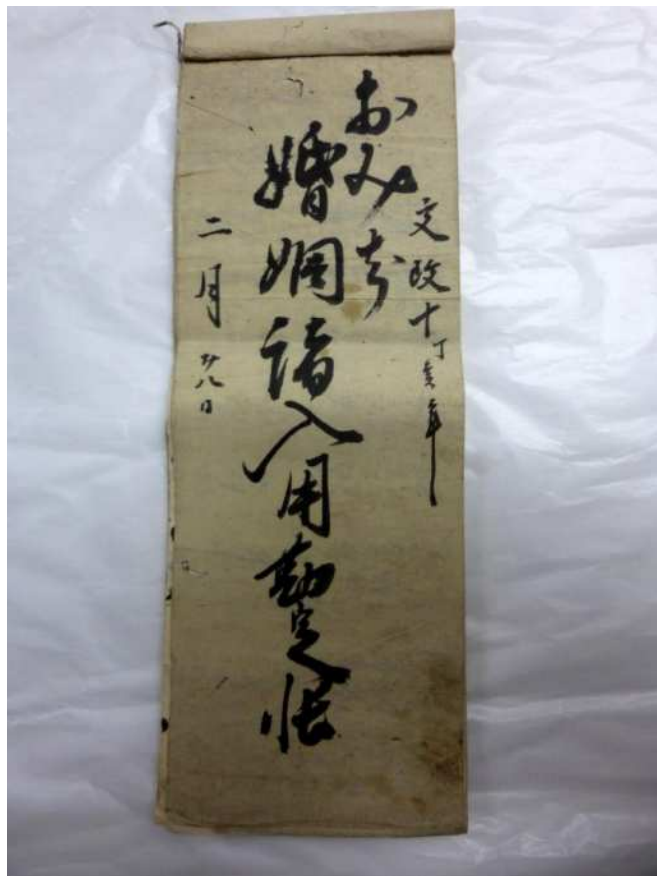 文政十丁亥年
おみ
婚姻諸入用勘定帳
二月廿八日